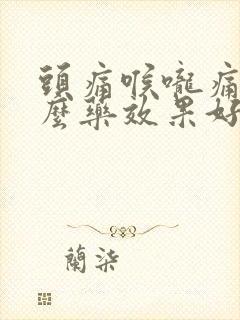 頭痛喉嚨痛
麼藥效果好
蘭柒